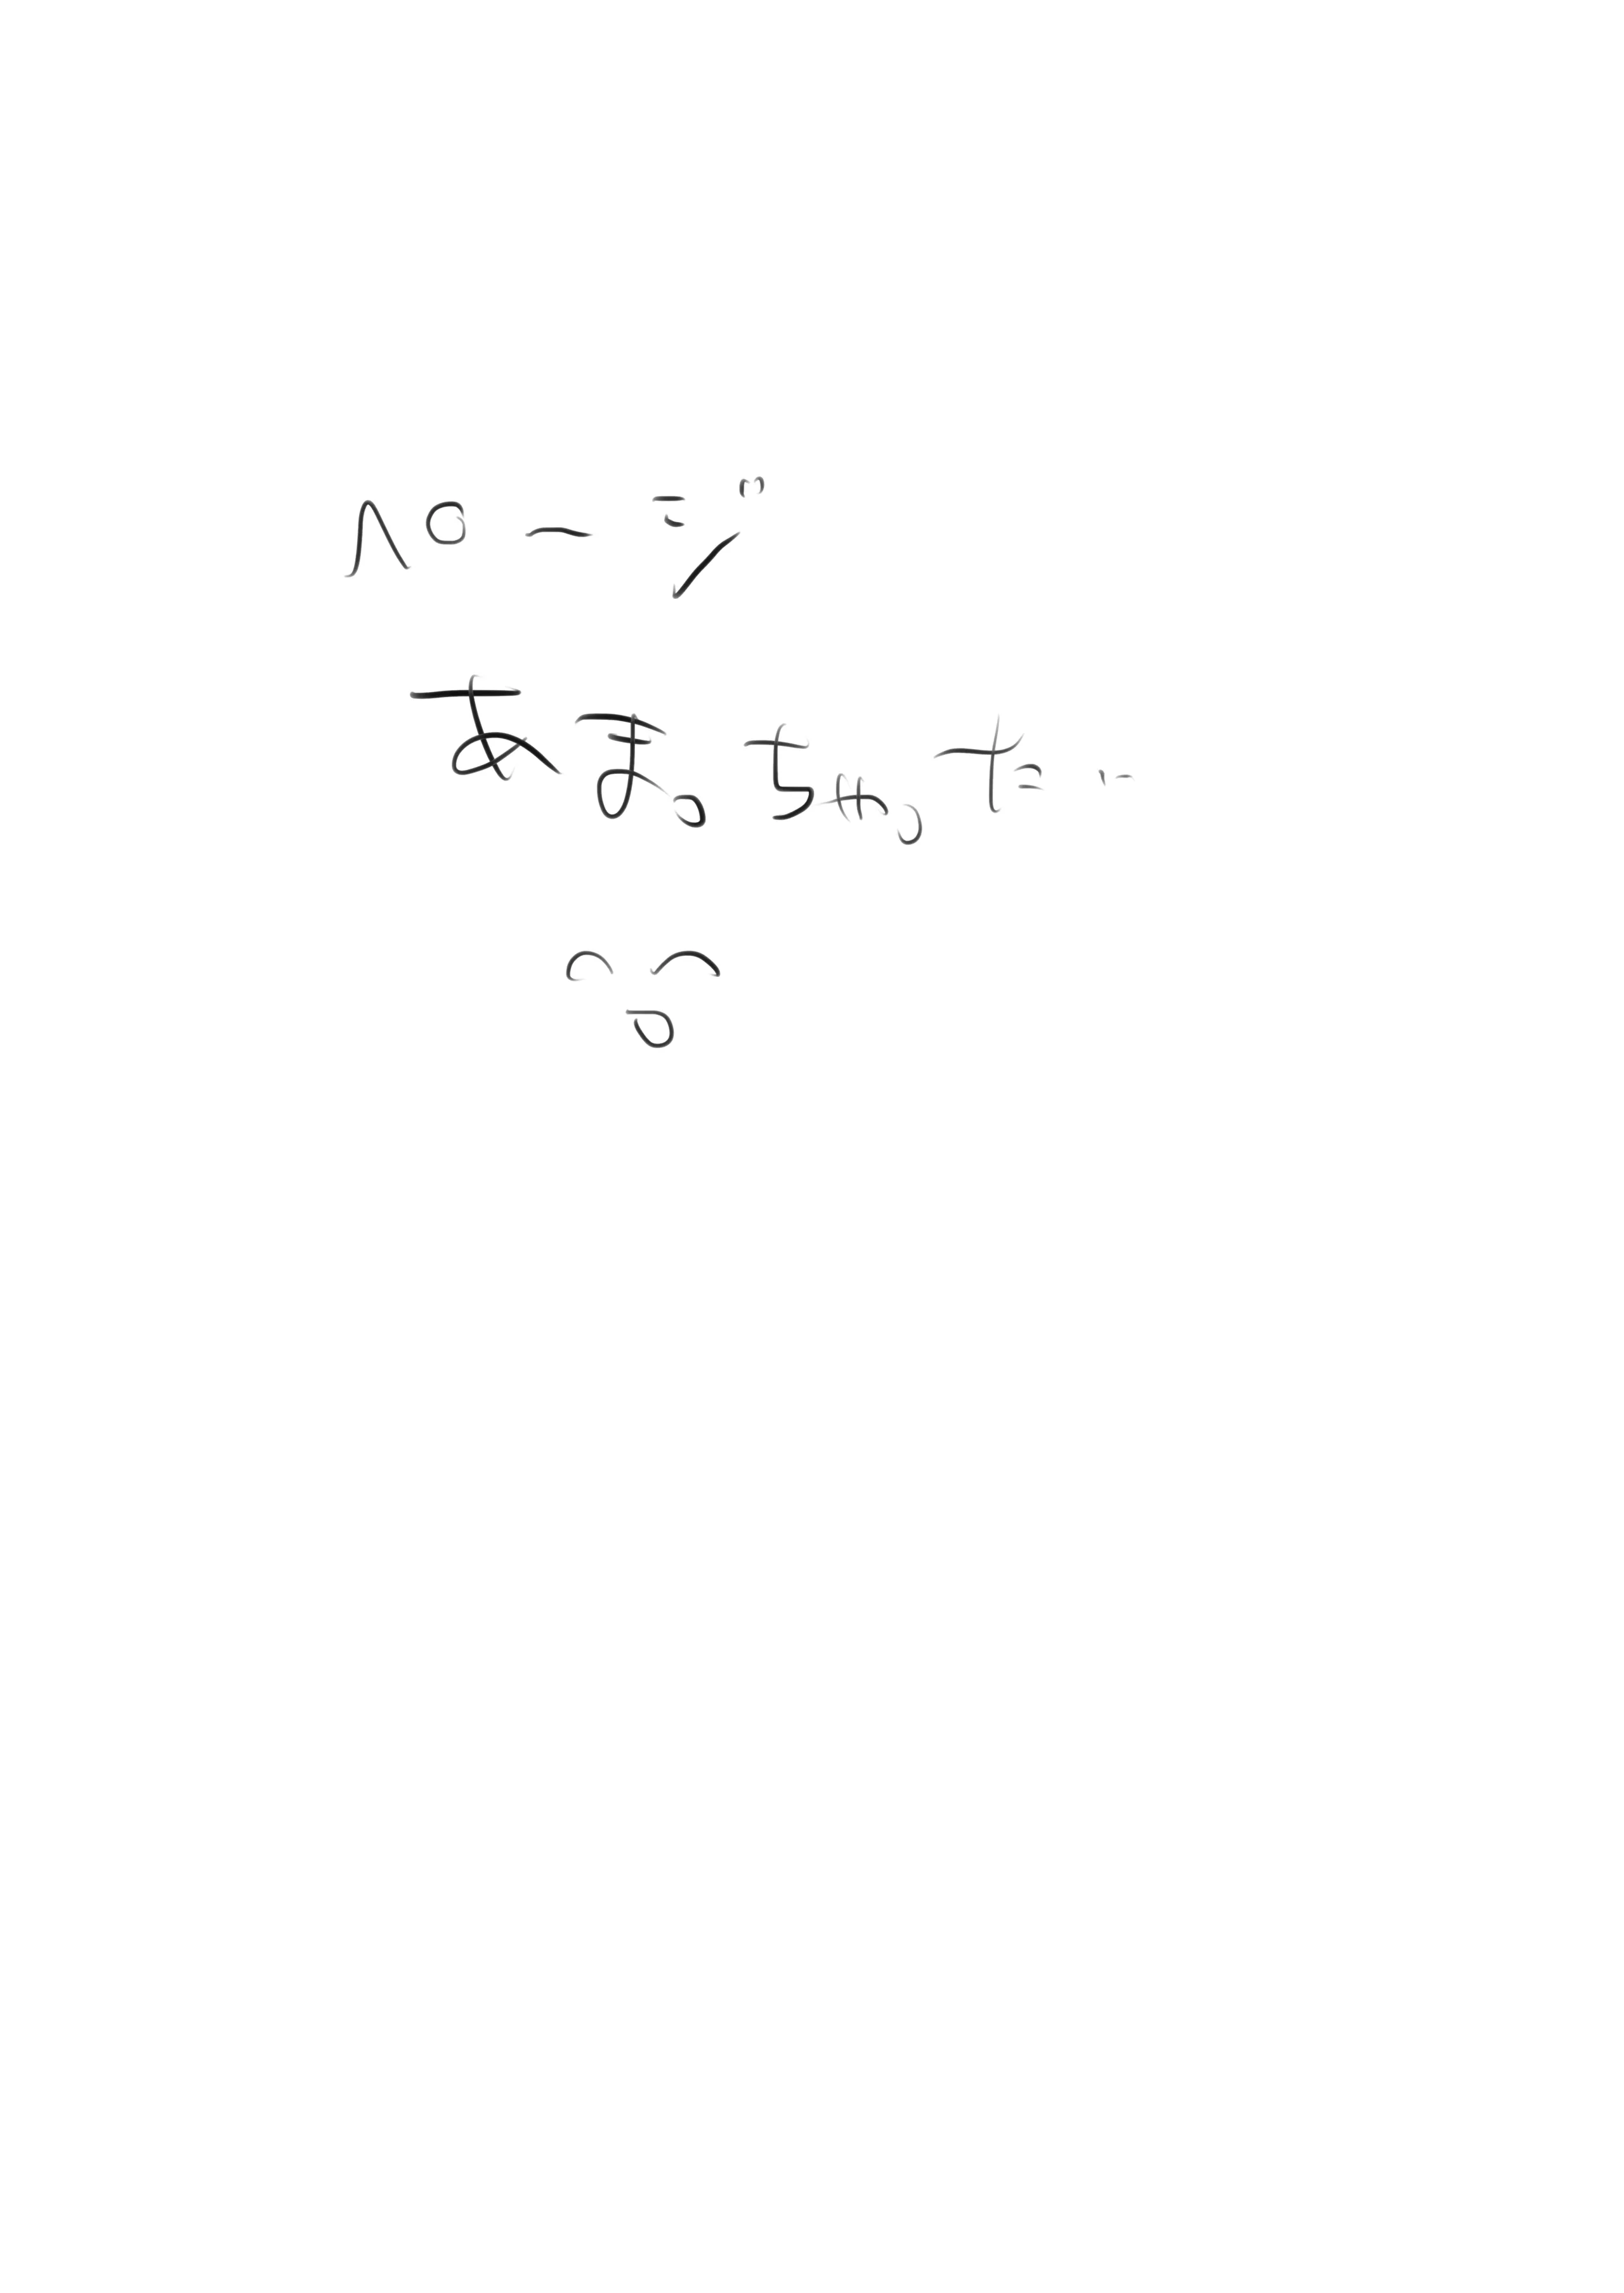 ページ
あまっちゃった…